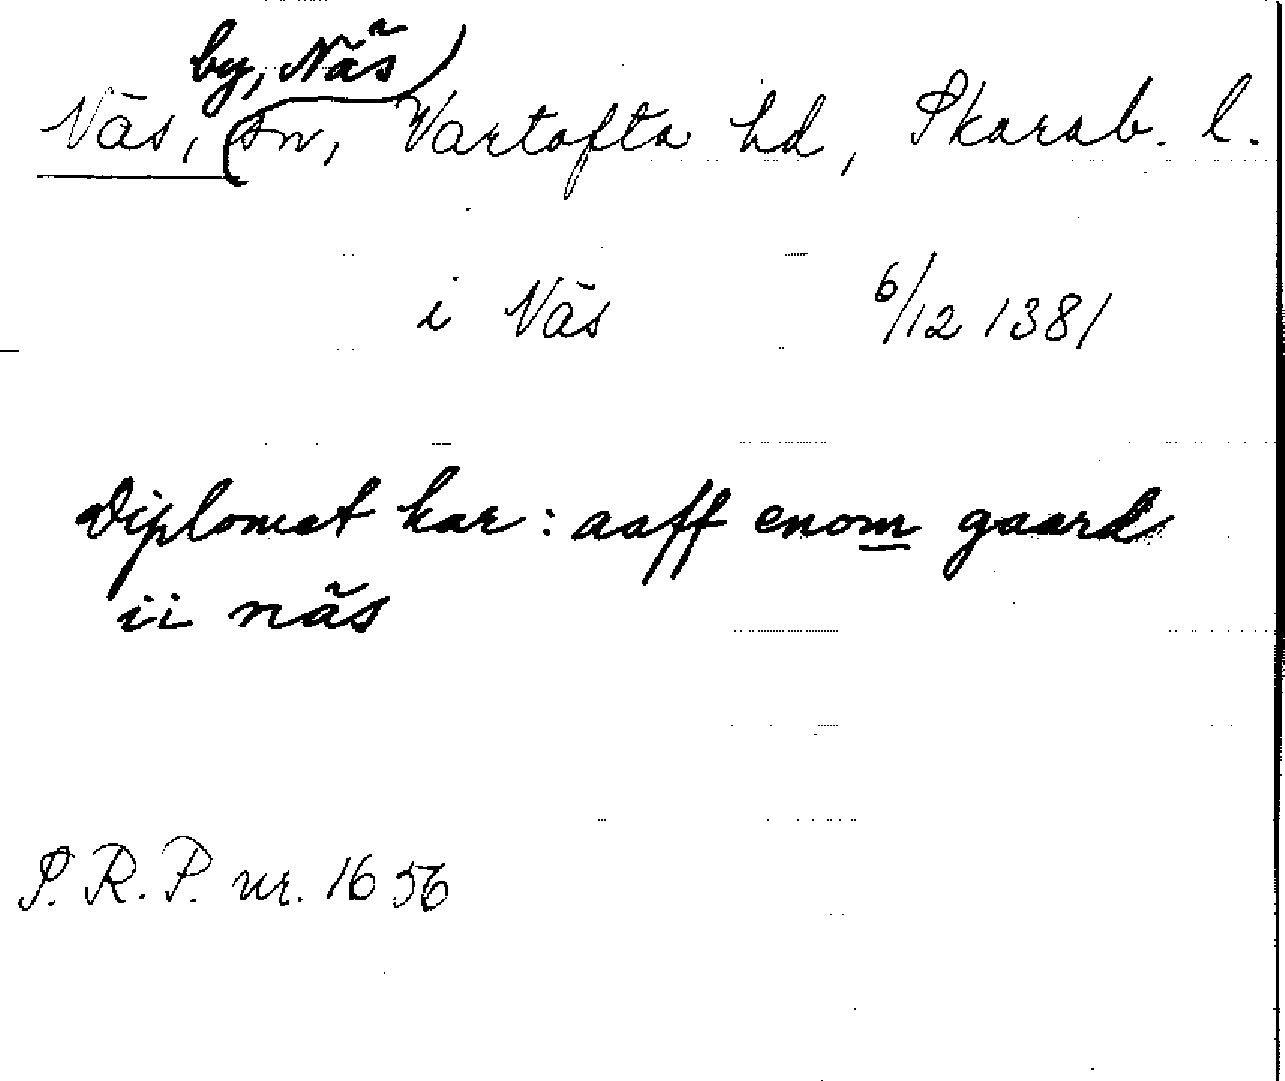 by, Näs)
Näs, (sn, Vartofta hd, Skarab. l.
i Näs 6/12 1381
Diplomet har: aaff enom gaard
ii näs
S. R. P. nr. 1656